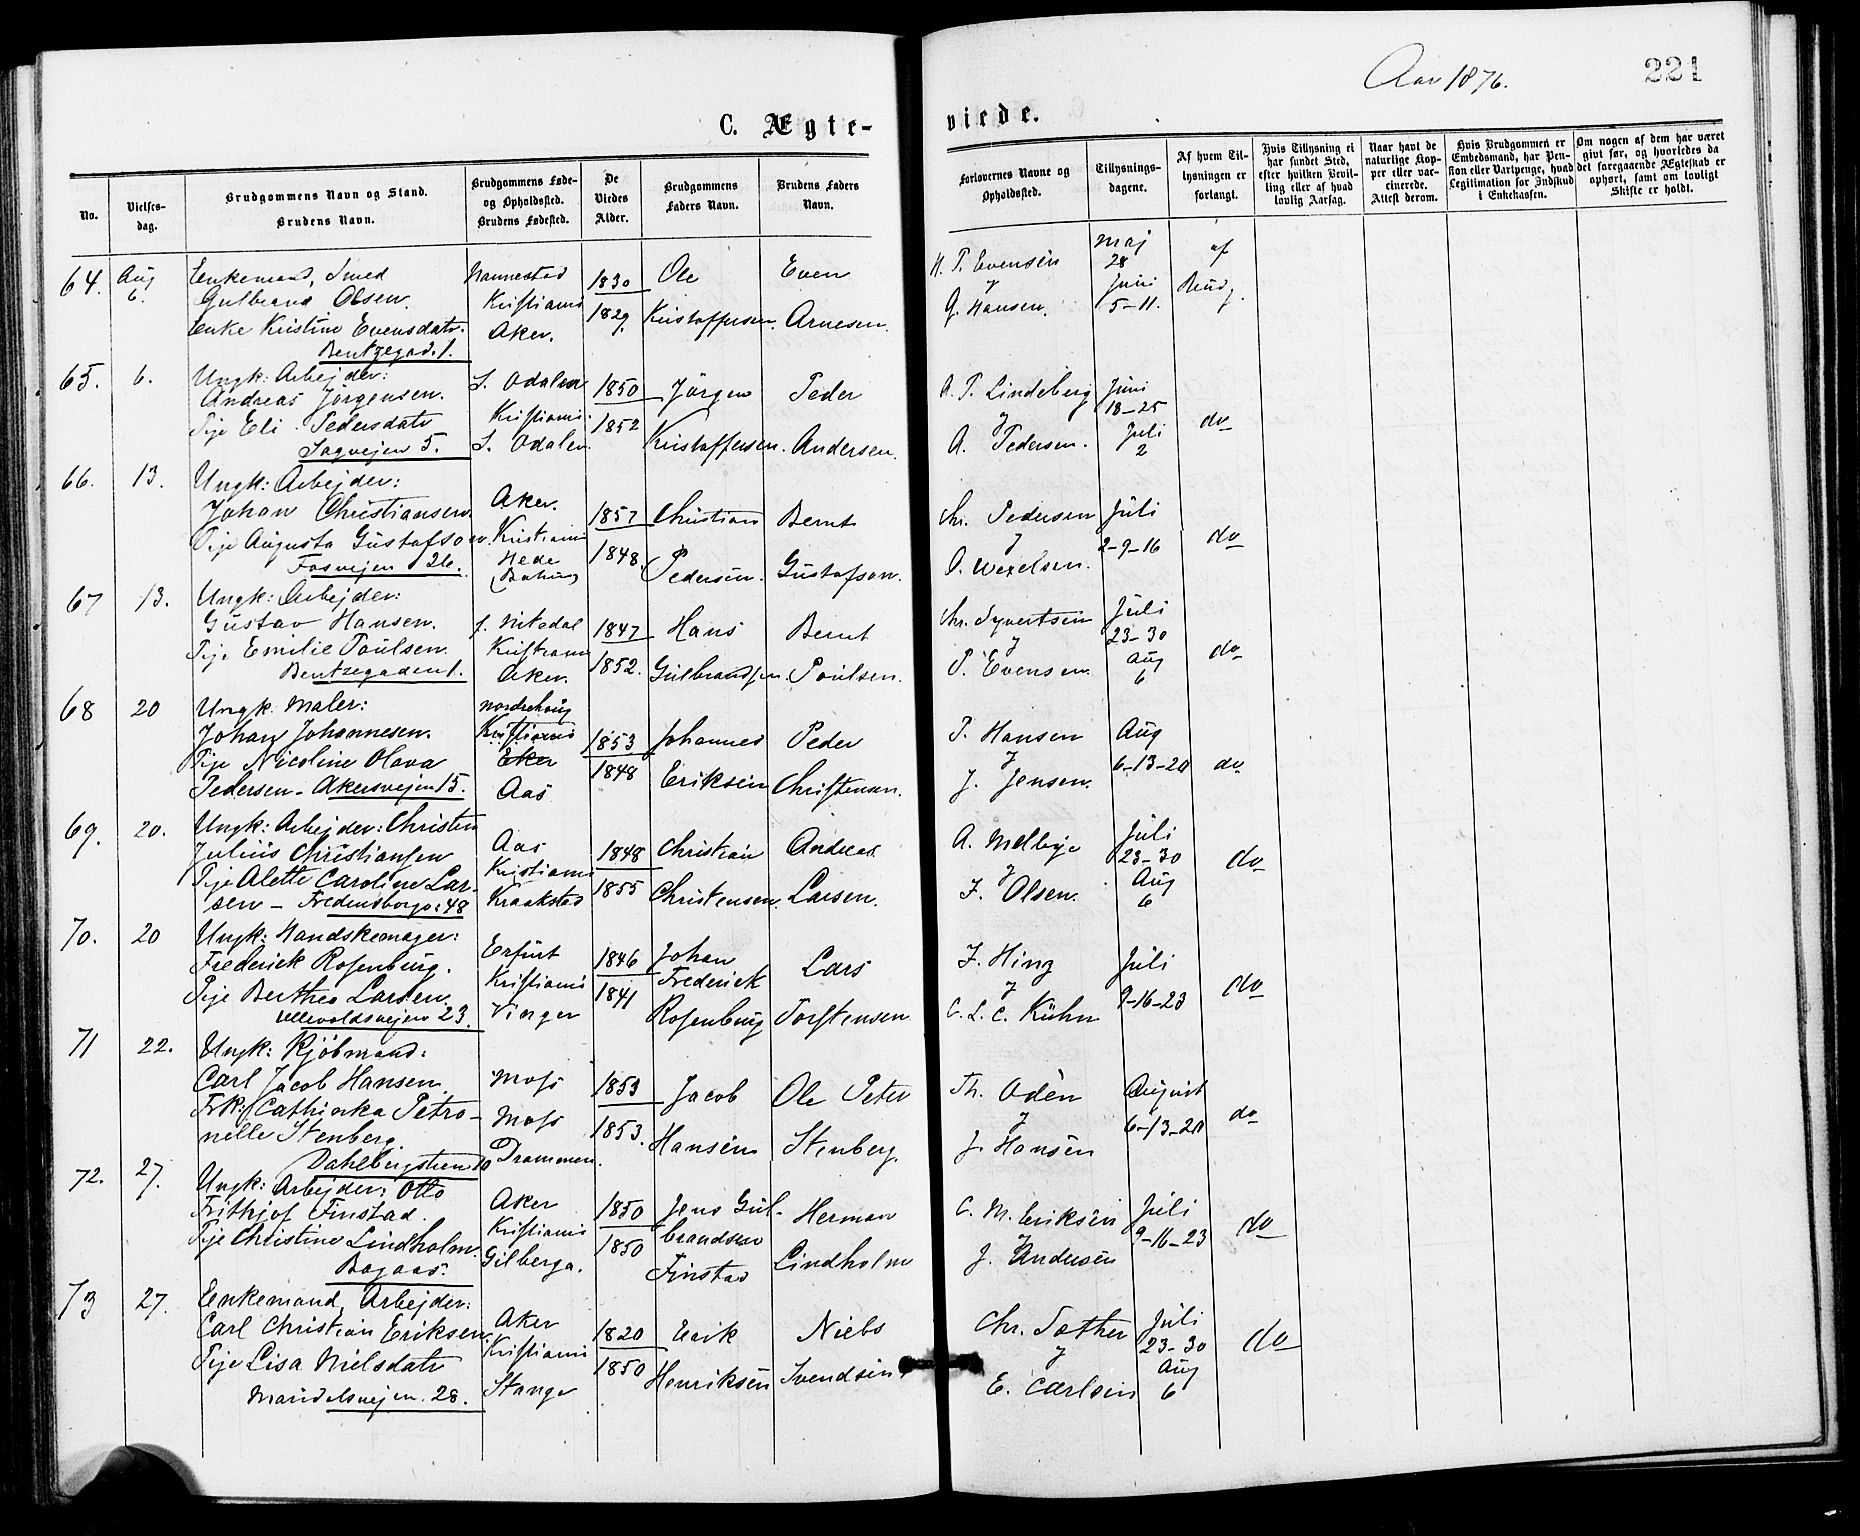 Aar 1876.
221
C. Ægte-
viede.
No.
Vielses-
dag.
Brudgommens Navn og Stand.
Brudens Navn.
Brudgommens Føde-
og Opholdssted.
Brudens Fødested.
De
Viedes
Alder.
Brudgommens
Faders Navn.
Brudens Faders
Navn.
Forlovernes Navne og
Opholdssted.
Tillysnings-
dagene.
Af hvem Til-
lysningen er
forlangt.
Hvis Tillysning ei
har fundet Sted,
efter hvilken Bevil-
ling eller af hvad
lovlig Aarsag.
Naar havt de
naturlige Kop-
per eller vac-
cinerede.
Attest derom.
Hvis Brudgommen er
Embedsmand, har Pen-
sion eller Vartpenge, hvad
Legitimation for Indskud
i Enkekassen.
Om nogen af dem har været
givt før, og hvorledes da
det foregaaende Ægteskab er
ophørt, samt om lovligt
Skifte er holdt.
64.
Aug
6.
Enkemand, Smed
Gulbrand Olsen.
Enke Kristine Evensdatr.
Bentzegad. 1.
Nannestad
Kristiania
Aker.
1830
1829.
Ole
Kristoffersen.
Even
Arnesen.
H. P. Evensen
G. Hansen.
Maj
28
Juni
5-11.
af
Brudg.
65.
6.
Ungk: Arbejder:
Andreas Jörgensen.
Pige Eli Pedersdatr
Sagvejen 5.
S. Odalen
Kristiania
S. Odalen.
1850
1852
Jörgen
Kristoffersen.
Peder
Andersen.
A. P. Lindeberg
A. Pedersen.
Juni
18-25
Juli
2
do
66.
13.
Ungk: Arbejder:
Johan Christiansen.
Pige Augusta Gustafson.
Fosvejen 26.
Aker.
Kristiania
Hede
1857
1848.
Christian
Pedersen.
Bernt
Gustafson.
Chr. Pedersen
O. Wexelsen.
Juli
2-9-16
do
67
13.
Ungk: Arbejder:
Gustav Hansen.
Pige Emilie Poulsen.
Bentzegaden 1.
f. Nitedal
Kristiania
Aker.
1847
1852.
Hans
Gulbrandsen.
Bernt
Poulsen.
Chr. Syvertsen
P. Evensen.
Juli
23-30
Aug
6
do
68
20
Ungk. Maler:
Johan Johannesen.
Pige Nicoline Olava
Pedersen - Akersvejen 15.
Nordrehoug
Kristiania
Eker
Aas
1853
1848
Johannes
Eriksen
Peder
Christensen.
P. Hansen
J. Jensen.
Aug
6-13-20
do
69.
20.
Ungk: Arbejder: Christen
Julius Christiansen
Pige Alette Caroline Lar-
sen - Fredensborgv: 48
Aas
Kristiania
Kraakstad
1848
1855
Christian
Christensen.
Andreas
Larsen.
A. Melbye
F. Olsen.
Juli
23-30
Aug
6
do
70.
20
Ungk: Handskemager:
Frederick Rosenburg.
Pige Berthea Larsen.
Ullevoldsvejen 23.
Erfurt
Kristiania
Vinger
1846
1841
Johan
Frederick
Rosenburg
Lars
Torstensen
F. Hing
C. L. C. Kühn
Juli
9-16-23
do
71
22.
Ungk: Kjöbmand:
Carl Jacob Hansen.
Frk: Cathinka Petro-
nelle Stenberg.
Dahlbergstien 10
Moss
Moss
Drammen.
1853
1853.
Jacob
Hansen
Ole Peter
Stenberg.
Th. Odén
J. Hansen
August
6-13-20
do
72.
27.
Ungk: Arbejder: Otto
Frithjof Finstad.
Pige Christine Lindholm.
Bagaas.
Aker
Kristiania
Gilberga.
1850
1850
Jens Gul-
brandsen
Finstad
Herman
Lindholm
C. M. Eriksen
J. Andersen
Juli
9-16-23
do
73
27.
Enkemand, Arbejder:
Carl Christian Eriksen.
Pige Lisa Nielsdatr
Maridalsvejen 28.
Aker
Kristiania
Stange
1820
1850
Erik
Henriksen
Niels
Svendsen
Chr. Sother
E. Carlsen
Juli
23-30
Aug
6
do